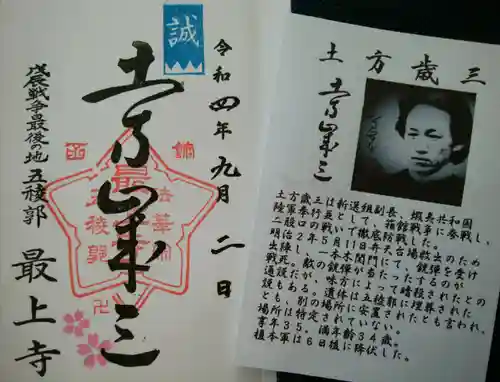 誠
令和四年九月二日
土方歳三
戊辰戦争最後の地 五稜郭
最上寺
土方歳三
土方歳三
土方歳三は新選組副長、蝦夷共和国
陸軍奉行並として、箱館戦争に参戦し、
二股口の戦いで徹底防戦した。
明治2年5月11日弁天台場救出のため
出陣し、一本木関門にて、銃弾を受け
戦死。敵の銃弾が当たったするのが
通説だが、味方によって暗殺されたとの
説もある。遺体は五稜郭に埋葬された
とも、別の場所に安置されたとも言われ、
場所は特定されていない。
享年35。満年齢34歳。
榎本軍は6日後に降伏した。